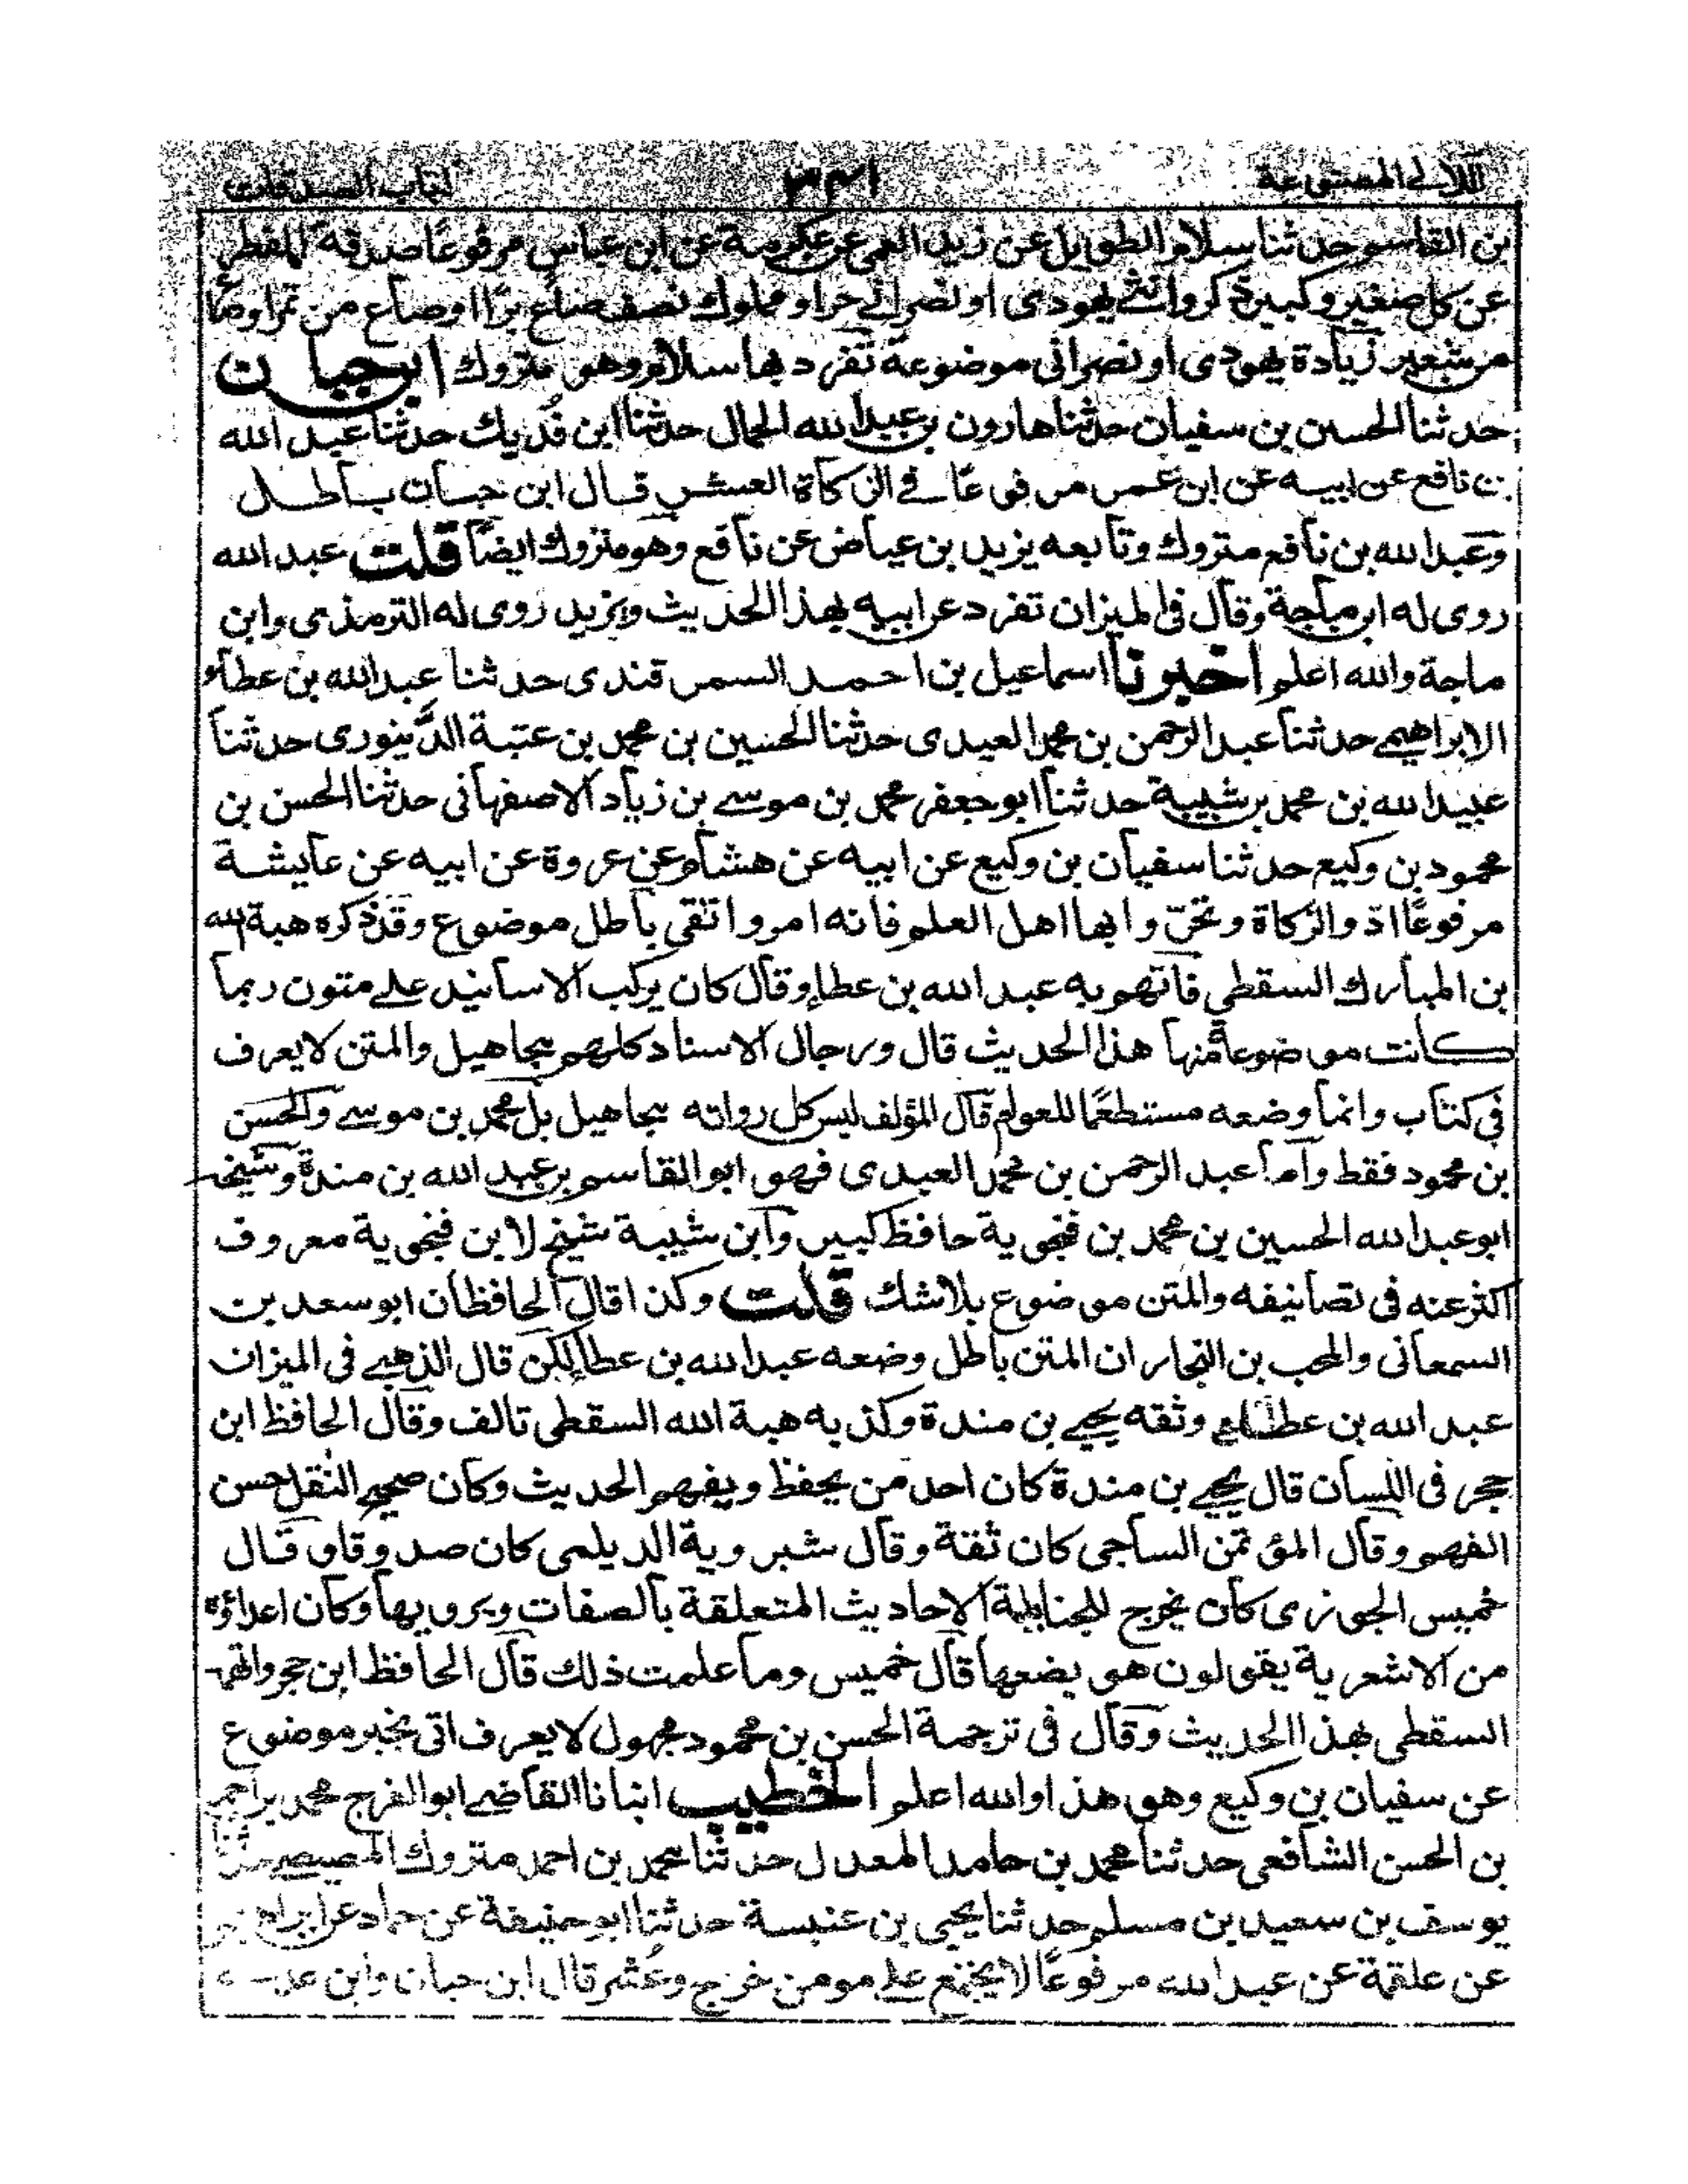 اللآلي المصنوعة ٣٤١ كتاب الصدقات
بن القاسم حدثنا سلام الطويل عن زيد العمي عن عكرمة عن ابن عباس مرفوعًا صدقة الفطر
عن كل صغير وكبير ذكر وانثى يهودى او نصرانى حر او مملوك نصف صاع برًّا او صاع من تمر او صاعًا
من شعير زيادة يهودى او نصرانى موضوعة تفرد بها سلام وهو متروك ابن حبان
حدثنا الحسين بن سفيان حدثنا هارون بن عبد الله الحمال حدثنا ابن فُديك حدثنا عبد الله
بن نافع عن ابيه عن ابن عمر مرفوعًا في الزكاة العشر قال ابن حبان باطل
وعبد الله بن نافع متروك وتابعه يزيد بن عياض عن نافع وهو متروك ايضًا قلت عبد الله
روى له ابن ماجة وقال في الميزان تفرد عن ابيه بهذا الحديث ويزيد روى له الترمذى وابن
ماجة والله اعلم اخبرنا اسماعيل بن احمد السمرقندى حدثنا عبد الله بن عطاء
الابراهيمي حدثنا عبد الرحمن بن محمد العبدى حدثنا الحسين بن محمد بن عتبة الدَّينورى حدثنا
عبيد الله بن محمد بن شيبة حدثنا ابو جعفر محمد بن موسى بن زياد الاصفهانى حدثنا الحسن بن
محمود بن وكيع حدثنا سفيان بن وكيع عن ابيه عن هشام عن عروة عن ابيه عن عايشة
مرفوعًا ادوا الزكاة وتحرّوا بها اهل العلم فانه امر واتقى باطل موضوع وقد ذكره هبة الله
بن المبارك السقطي فاتهم به عبد الله بن عطاء وقال كان يركب الاسانيد على متون ربما
كانت موضوعة منها هذا الحديث قال ورجال الاسناد كلهم مجاهيل والمتن لا يعرف
في كتاب وانما وضعه مستطعمًا للعوام قال المؤلف ليس كل رواته بمجاهيل بل محمد بن موسى والحسن
بن محمود فقط واما عبد الرحمن بن محمد العبدى فهو ابو القاسم بن عبد الله بن مندة وشيخه
ابو عبد الله الحسين بن محمد بن فنجوية حافظ كبير وابن شيبة شيخ لابن فنجوية معروف
اكثر عنه فى تصانيفه والمتن موضوع بلا شك قلت وكذا قال الحافظان ابو سعد بن
السمعانى والمحب بن النجار ان المتن باطل وضعه عبد الله بن عطاء لكن قال الذهبى فى الميزان
عبد الله بن عطاء وثقه يحيى بن مندة وكذبه هبة الله السقطى تالف وقال الحافظ ابن
حجر فى اللسان قال يحيى بن مندة كان احد من يحفظ ويفهم الحديث وكان صحيح النقل حسن
الفهم وقال المؤتمن الساجى كان ثقة وقال شيروية الديلمى كان صدوقا وقال
خميس الجوزى كان يخرج للحنابلة الاحاديث المتعلقة بالصفات ويرويها وكان اعداؤه
من الاشعرية يقولون هو يضعها قال خميس وما علمت ذلك قال الحافظ ابن حجر واتهمه
السقطى بهذا الحديث وقال فى ترجمة الحسن بن محمود مجهول لا يعرف اتى بخبر موضوع
عن سفيان بن وكيع وهو هذا والله اعلم الخطيب انبانا القاضى ابو الفرج محمد بن احمد
بن الحسن الشافعى حدثنا محمد بن حامد المعدل حدثنا محمد بن احمد متروك المصيصى حدثنا
يوسف بن سعيد بن مسلم حدثنا يحيى بن عنبسة حدثنا ابو حنيفة عن حماد عن ابراهيم
عن علقمة عن عبد الله مرفوعًا لا يجتمع على مومن خرج وعُشر قال ابن حبان وابن عدى